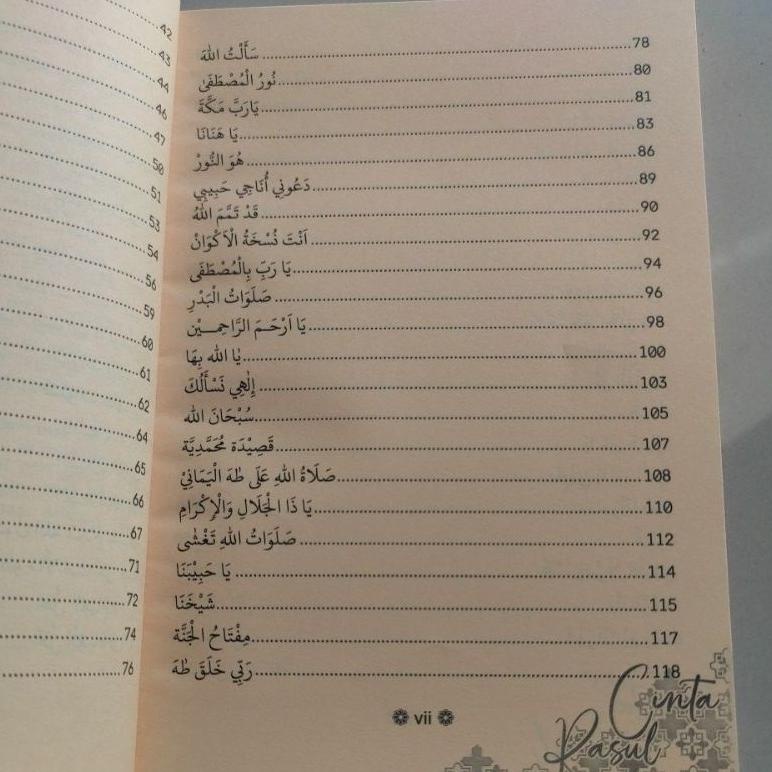 42
43
44
46
47
50
51
53
54
56
59
60
61
62
64
65
66
67
71
72
74
76
سَأَلْتُ اللهَ 78
نُورُ الْمُصْطَفَىٰ 80
يَارَبَّ مَكَّةَ 81
يَا هَنَانَا 83
هُوَ النُّورُ 86
دَعُونِي أُنَاجِي حَبِيبِي 89
قَدْ تَمَّمَ اللهُ 90
اَنْتَ نُسْخَةُ الْاَكْوَانْ 92
يَا رَبِّ بِالْمُصْطَفَى 94
صَلَوَاتُ الْبَدْرِ 96
يَا اَرْحَمَ الرَّاحِمِـــيْن 98
يَا الله بِهَا 100
إِلٰهِي نَسْأَلُكَ 103
سُبْحَانَ الله 105
قَصِيْدَة مُحَمَّدِيَّة 107
صَلَاةُ اللهِ عَلَى طٰهَ الْيَمَانِيْ 108
يَا ذَا الْجَلَالِ وَالْإِكْرَامِ 110
صَلَوَاتُ اللهِ تَغْشٰى 112
يَا حَبِيْبَنَا 114
شَيْخَنَا 115
مِفْتَاحُ الْجَنَّة 117
رَبِّي خَلَقَ طٰهَ 118
vii
Cinta
Rasul